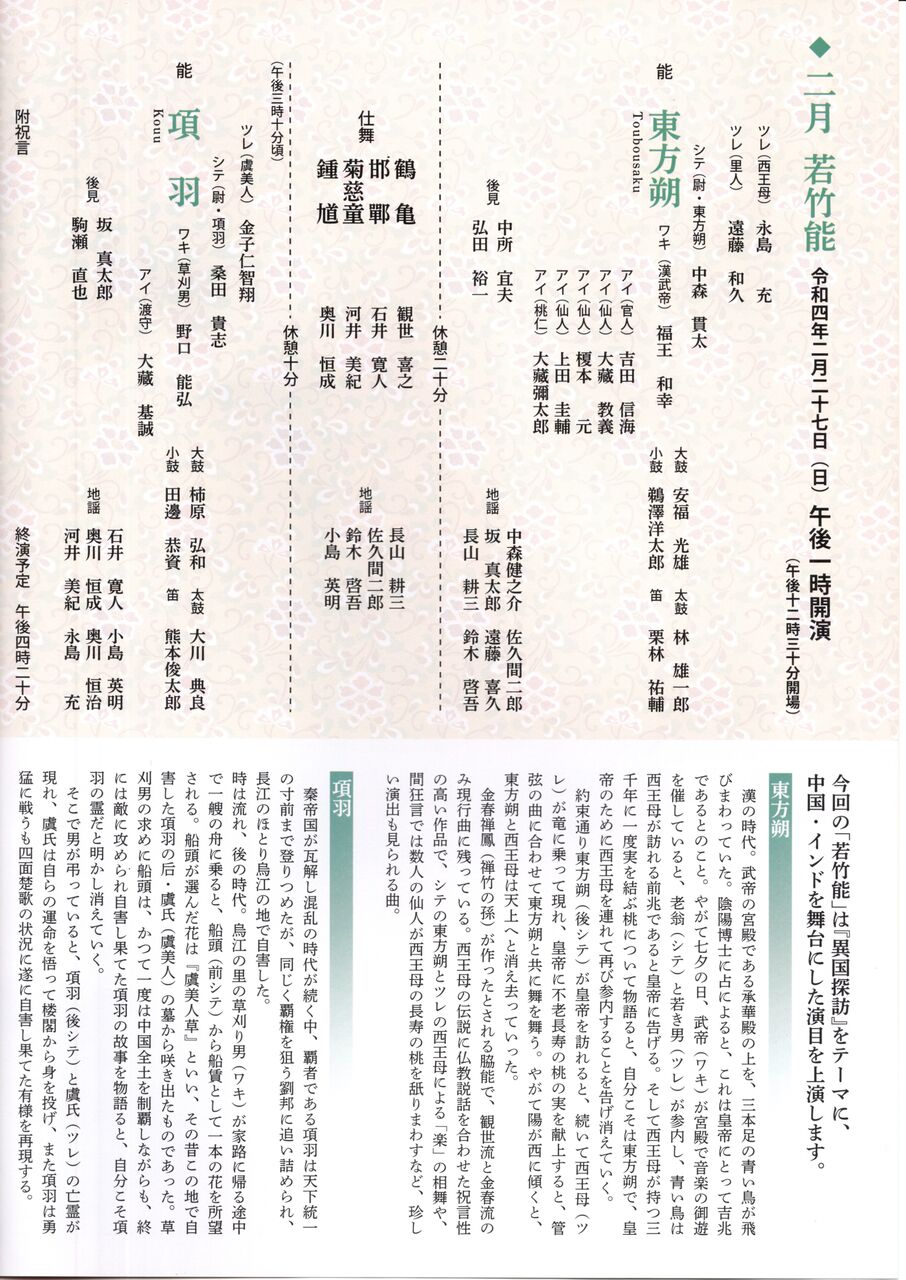 ◆二月 若竹能 令和四年二月二十七日（日）午後一時開演
（午後十二時三十分開場）
ツレ（西王母） 永島 充
ツレ（里人） 遠藤 和久
シテ（尉・東方朔） 中森 貫太
能 東方朔 Toubousaku
ワキ（漢武帝） 福王 和幸
アイ（官人） 吉田 信海
アイ（仙人） 大藏 教義
アイ（仙人） 榎本 元
アイ（仙人） 上田 圭輔
アイ（桃仁） 大藏彌太郎
大鼓 安福 光雄 太鼓 林 雄一郎
小鼓 鵜澤洋太郎 笛 栗林 祐輔
後見 中所 宜夫
弘田 裕一
地謡 中森健之介 佐久間二郎
坂 真太郎 遠藤 喜久
長山 耕三 鈴木 啓吾
休憩二十分
仕舞
鶴亀 観世 喜之
邯鄲 石井 寛人
菊慈童 河井 美紀
鍾馗 奥川 恒成
地謡 長山 耕三
佐久間二郎
鈴木 啓吾
小島 英明
休憩十分
（午後三時十分頃）
ツレ（虞美人） 金子仁智翔
シテ（尉・項羽） 桑田 貴志
能 項羽 Kouu
ワキ（草刈男） 野口 能弘
アイ（渡守） 大藏 基誠
大鼓 柿原 弘和 太鼓 大川 典良
小鼓 田邊 恭資 笛 熊本俊太郎
後見 坂 真太郎
駒瀬 直也
地謡 石井 寛人 小島 英明
奥川 恒成 奥川 恒治
河井 美紀 永島 充
附祝言
終演予定 午後四時二十分
今回の「若竹能」は『異国探訪』をテーマに、
中国・インドを舞台にした演目を上演します。
東方朔
漢の時代。武帝の宮殿である承華殿の上を、三本足の青い鳥が飛
びまわっていた。陰陽博士に占によると、これは皇帝にとって吉兆
であるとのこと。やがて七夕の日、武帝（ワキ）が宮殿で音楽の御遊
を催していると、老翁（シテ）と若き男（ツレ）が参内し、青い鳥は
西王母が訪れる前兆であると皇帝に告げる。そして西王母が持つ三
千年に一度実を結ぶ桃について物語ると、自分こそは東方朔で、皇
帝のために西王母を連れて再び参内することを告げ消えていく。
約束通り東方朔（後シテ）が皇帝を訪れると、続いて西王母（ツ
レ）が竜に乗って現れ、皇帝に不老長寿の桃の実を献上すると、管
弦の曲に合わせて東方朔と共に舞を舞う。やがて陽が西に傾くと、
東方朔と西王母は天上へと消え去っていった。
金春禅鳳（禅竹の孫）が作ったとされる脇能で、観世流と金春流の
み現行曲に残っている。西王母の伝説に仏教説話を合わせた祝言性
の高い作品で、シテの東方朔とツレの西王母による「楽」の相舞や、
間狂言では数人の仙人が西王母の長寿の桃を舐りまわすなど、珍し
い演出も見られる曲。
項羽
秦帝国が瓦解し混乱の時代が続く中、覇者である項羽は天下統一
の寸前まで登りつめたが、同じく覇権を狙う劉邦に追い詰められ、
長江のほとり烏江の地で自害した。
時は流れ、後の時代。烏江の里の草刈り男（ワキ）が家路に帰る途中
で一艘の舟に乗ると、船頭（前シテ）から船賃として一本の花を所望
される。船頭が選んだ花は『虞美人草』といい、その昔この地で自
害した項羽の后・虞氏（虞美人）の墓から咲き出たものであった。草
刈男の求めに船頭は、かつて一度は中国全土を制覇しながらも、終
には敵に攻められ自害し果てた項羽の故事を物語ると、自分こそ項
羽の霊だと明かし消えていく。
そこで男が弔っていると、項羽（後シテ）と虞氏（ツレ）の亡霊が
現れ、虞氏は自らの運命を悟って楼閣から身を投げ、また項羽は勇
猛に戦うも四面楚歌の状況に遂に自害し果てた有様を再現する。